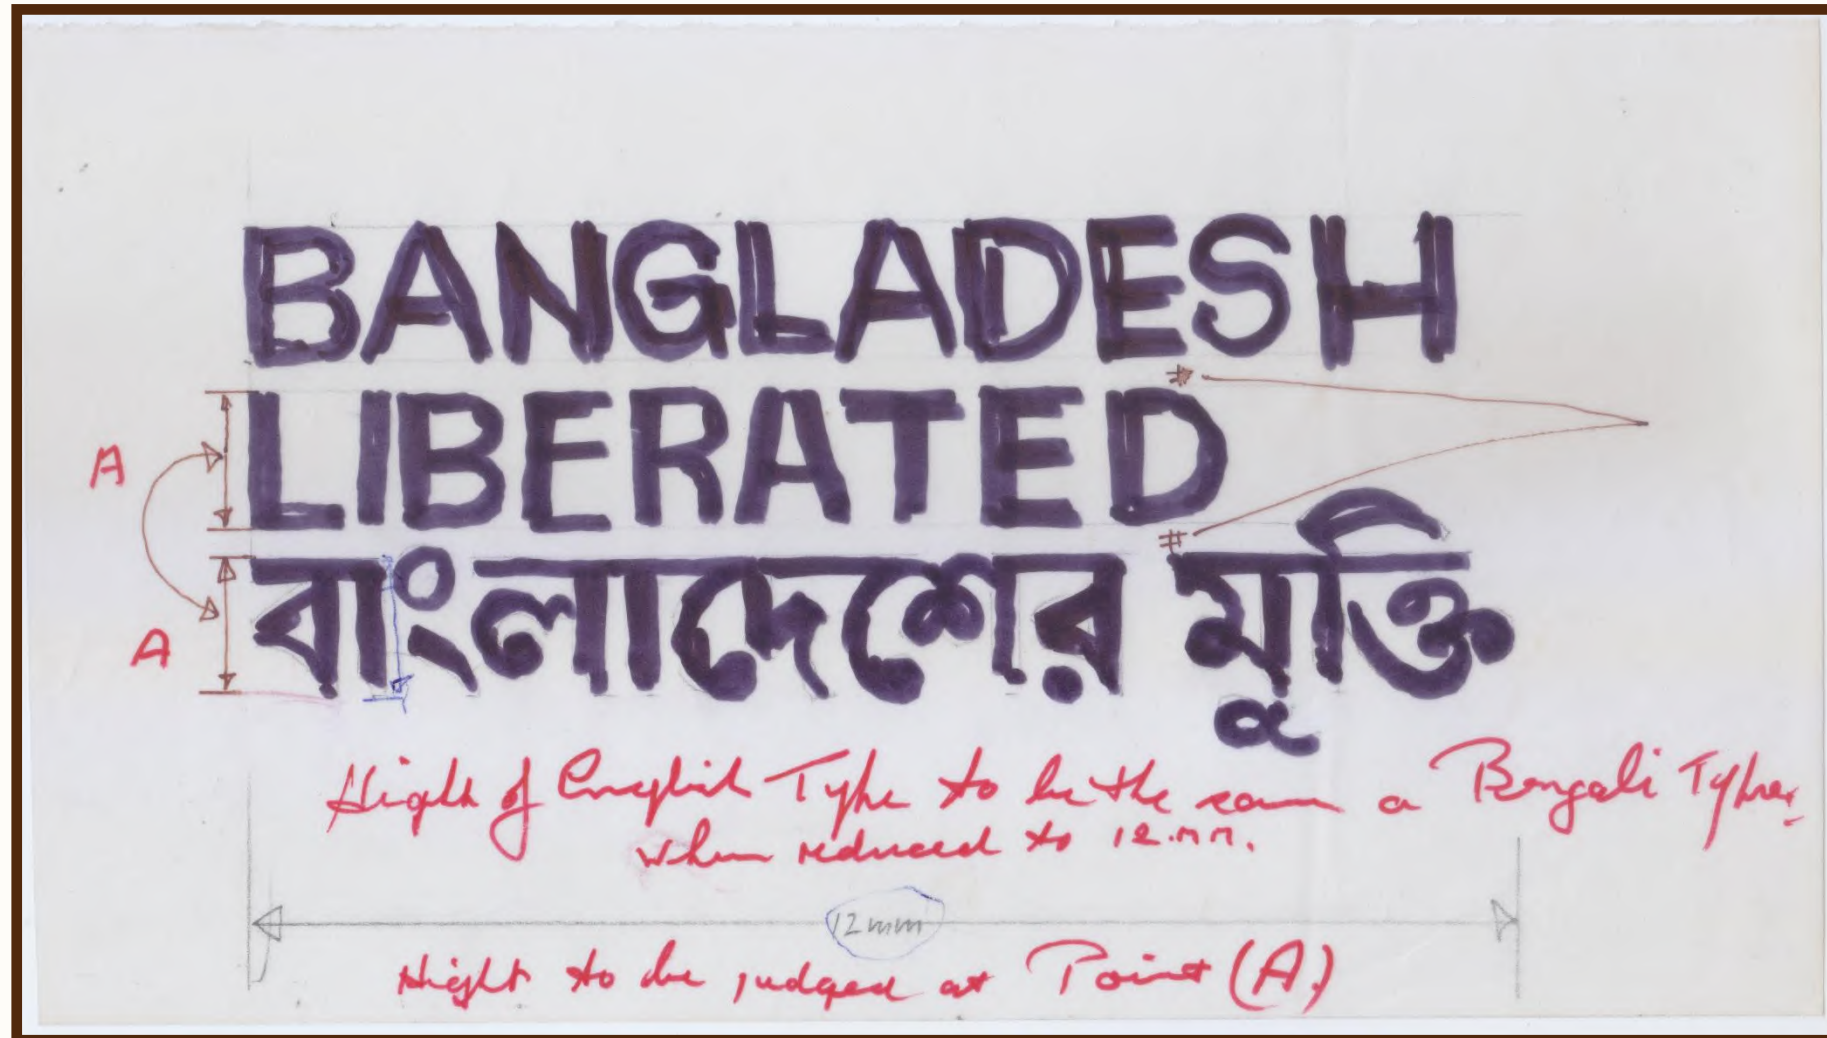 BANGLADESH
LIBERATED
বাংলাদেশের মূক্তি
A
A
Hight of English Type to be the same a Bengali Type
when reduced to 12.mm.
12mm
Hight to be judged at Point (A.)